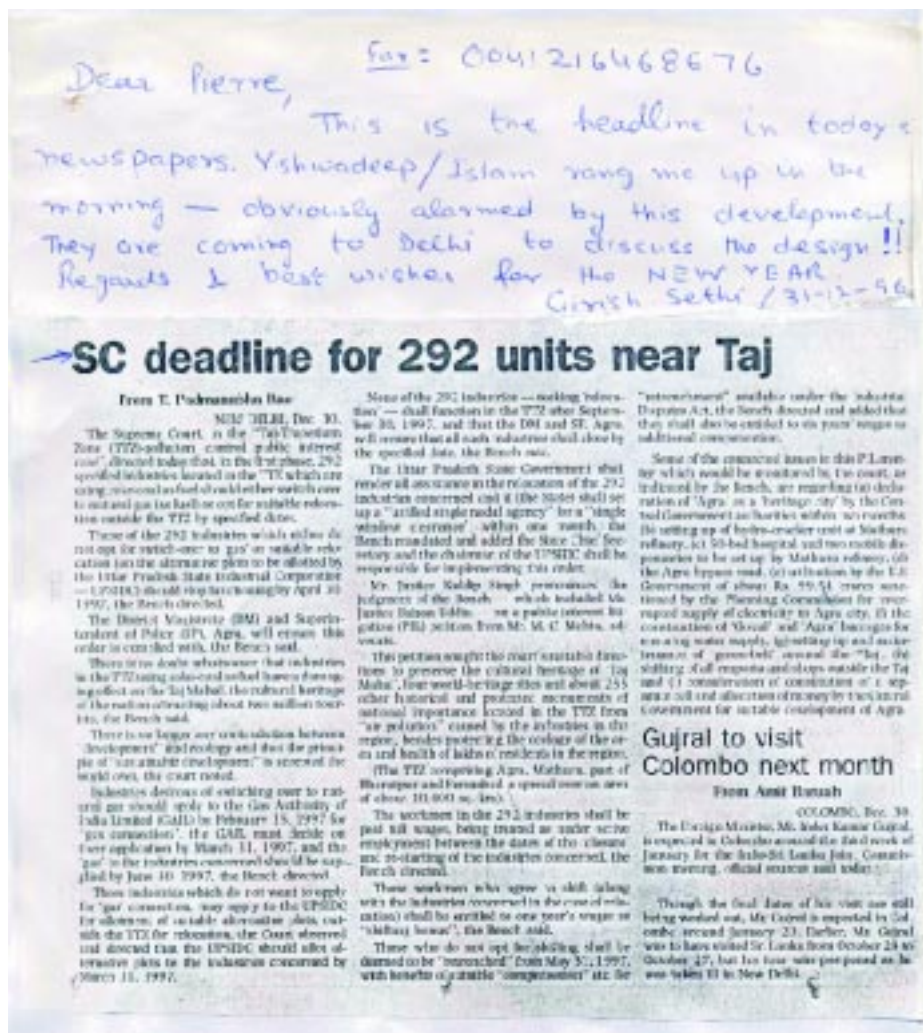 Fax: 0041216468676
Dear Pierre,
This is the headline in today's
newspapers. Yshwadeep/Islam rang me up in the
morning — obviously alarmed by this development.
They are coming to Delhi to discuss the design!!
Regards & best wishes for the NEW YEAR
Girish Sethi / 31-12-96
SC deadline for 292 units near Taj
From T. Padmanabha Rao
NEW DELHI, Dec. 30.
The Supreme Court, in the "Taj Trapezium
Zone (TTZ)-pollution control public interest
case", directed today that, in the first phase, 292
specified industries located in the TTZ which are
using coke/coal as fuel should either switch over
to natural gas (as fuel) or opt for suitable reloca-
tion outside the TTZ by specified dates.
Those of the 292 industries which either do
not opt for switch-over to 'gas' or suitable relo-
cation (on the alternative plots to be allotted by
the Uttar Pradesh State Industrial Corporation
— UPSIDC) should stop functioning by April 30
1997, the Bench directed.
The District Magistrate (DM) and Superin-
tendent of Police (SP), Agra, will ensure this
order is complied with, the Bench said.
There is no doubt whatsoever that industries
in the TTZ using coke/coal as fuel have a damag-
ing effect on the Taj Mahal, the cultural heritage
of the nation attracting about two million tour-
ists, the Bench said.
There is no longer any contradiction between
'development' and ecology and thus the princi-
ple of "sustainable development" is accepted the
world over, the court noted.
Industries desirous of switching over to nat-
ural gas should apply to the Gas Authority of
India Limited (GAIL) by February 15, 1997 for
'gas connection', the GAIL must decide on
their application by March 31, 1997, and the
'gas' to the industries concerned should be sup-
plied by June 30 1997, the Bench directed.
Those industries which do not want to apply
for 'gas' connection, may apply to the UPSIDC
for allotment of suitable alternative plots, out-
side the TTZ for relocation, the Court observed
and directed that the UPSIDC should allot al-
ternative plots to the industries concerned by
March 31, 1997.
None of the 292 industries — seeking 'reloca-
tion' — shall function in the TTZ after Septem-
ber 30, 1997, and that the DM and SP, Agra,
will ensure that all such industries shall close by
the specified date, the Bench said.
The Uttar Pradesh State Government shall
render all assistance in the relocation of the 292
industries concerned and it (the State) shall set
up a "unified single nodal agency" for a "single
window clearance" within one month, the
Bench mandated and added the State Chief Sec-
retary and the chairman of the UPSIDC shall be
responsible for implementing this order.
Mr. Justice Kuldip Singh pronounced the
judgment of the Bench — which included Mr.
Justice Faizan Uddin — on a public interest lit-
igation (PIL) petition from Mr. M. C. Mehta, ad-
vocate.
This petition sought the court's suitable direc-
tions to preserve the cultural heritage of 'Taj
Mahal', four world-heritage sites and about 255
other historical and protected monuments of
national importance located in the TTZ from
"air pollution" caused by the industries in the
region, besides protecting the ecology of the ar-
ea and health of lakhs of residents in the region.
(The TTZ comprising Agra, Mathura, part of
Bharatpur and Ferozabad is spread over an area
of about 10,400 sq. km).
The workmen in the 292 industries shall be
paid full wages, being treated as under active
employment between the dates of the closure
and re-starting of the industries concerned, the
Bench directed.
Those workmen who agree to shift (along
with the industries concerned in the case of relo-
cation) shall be entitled to one year's wages as
"shifting bonus", the Bench said.
Those who do not opt for shifting shall be
deemed to be "retrenched" from May 31, 1997,
with benefits of suitable "compensation" etc. for
"retrenchment" available under the Industrial
Disputes Act, the Bench directed and added that
they shall also be entitled to six years' wages as
additional compensation.
Some of the connected issues in this PIL mat-
ter which would be monitored by the court, as
indicated by the Bench, are regarding (a) decla-
ration of 'Agra' as a 'heritage city' by the Cen-
tral Government authorities within two months
(b) setting up of hydro-cracker unit at Mathura
refinery, (c) 50-bed hospital and two mobile dis-
pensaries to be set up by Mathura refinery, (d)
the Agra bypass road, (e) utilisation by the U.P.
Government of about Rs. 99.54 crores sanc-
tioned by the Planning Commission for over-
supply of electricity to Agra city, (f) the
construction of 'Gokul' and 'Agra' barrages for
water supply, (g) setting up and main-
tenance of 'green-belt' around the 'Taj', the
shifting of all emporia and shops outside the Taj
and (i) consideration of constitution of a sep-
arate cell and allocation of money by the Central
Government for suitable development of Agra.
Gujral to visit
Colombo next month
From Amit Baruah
COLOMBO, Dec. 30.
The Foreign Minister, Mr. Inder Kumar Gujral,
is expected in Colombo around the third week of
January for the Indo-Sri Lanka Joint Commis-
sion meeting, official sources said today.
Though the final dates of his visit are still
being worked out, Mr. Gujral is expected in Col-
ombo around January 20. Earlier, Mr. Gujral
was to have visited Sri Lanka from October 23 to
October 27, but his tour was postponed as he
was taken ill in New Delhi.